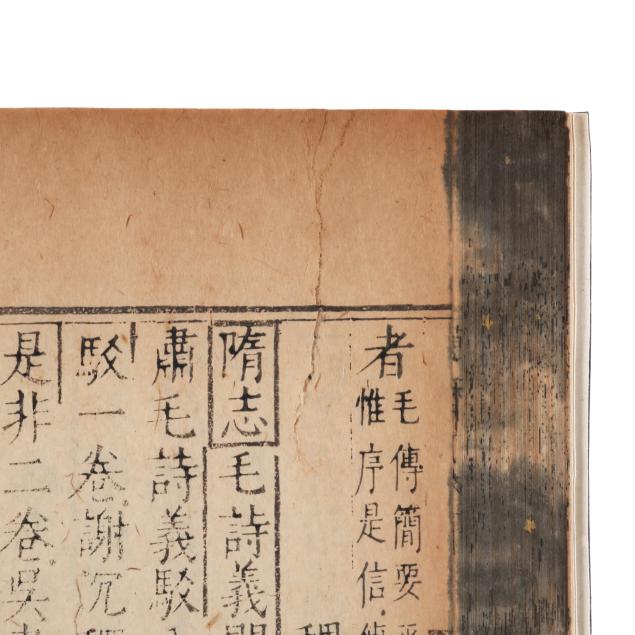 者毛傳簡要
惟序是信
隋志毛詩義
肅毛詩義駁
駁一卷謝沉
是非二卷吳